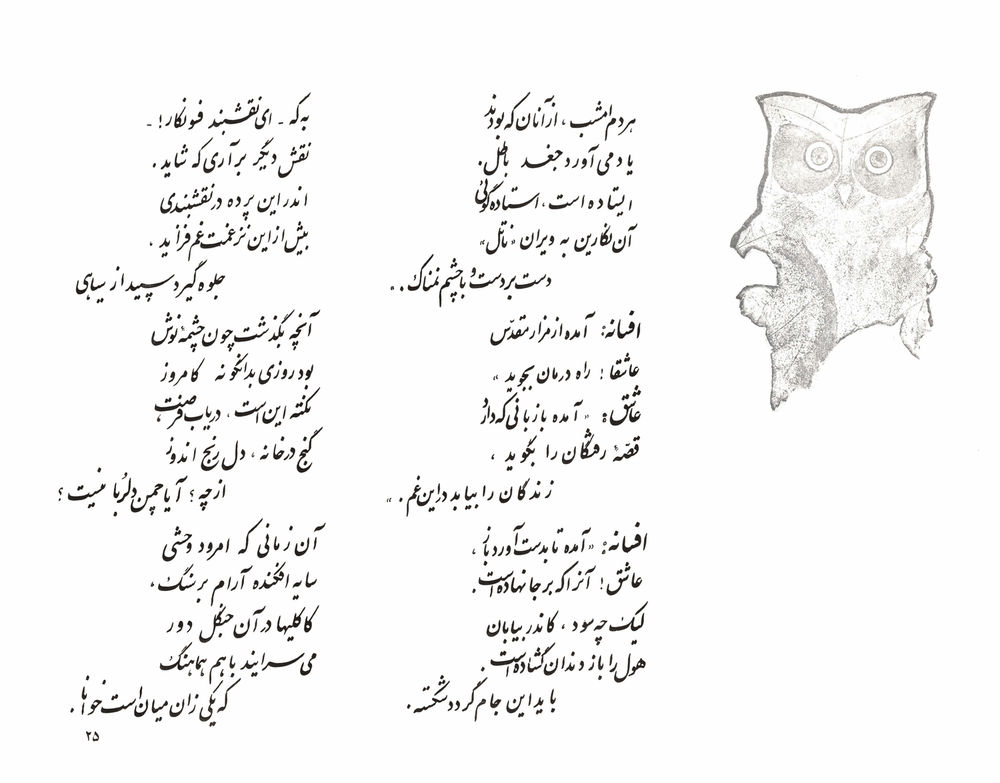 هردم امشب ، از آنان که بودند
یاد می آورد جغد باطل .
ایستاده است ، استاده گوئی
آن نگارین به ویران « ناتل »
دست بردست و با چشم نمناک . .
افسانه : آمده از مزار مقدس
عاشقا ! راه درمان بجوید »
عاشق : « آمده با زبانی که دارد
قصهٔ رفتگان را بگوید ،
زندگان را بیابد در این غم . »
افسانه : « آمده تا بدست آورد باز ،
عاشق ! آنرا که برجا نهاده است .
لیک چه سود ، کاندر بیابان
هول را باز دندان گشاده است .
باید این جام گردد شکسته .
به که - ای نقشبند فونکار ! -
نقش دیگر برآری که شاید .
اندر این پرده در نقشبندی
بیش از این نز غمت غم فزاید .
جلوه گیرد سپید از سیاهی
آنچه بگذشت چون چشمهٔ نوش
بود روزی بدانگونه کامروز
نکته این است ، دریاب فرصت
گنج در خانه ، دل رنج اندوز
از چه ؟ آیا چمن دلربا نیست ؟
آن زمانی که امرود وحشی
سایه افکنده آرام بر سنگ ،
کاکلیها در آن جنگل دور
می سرایند با هم هماهنگ
که یکی زان میان است خوانا .
۲۵